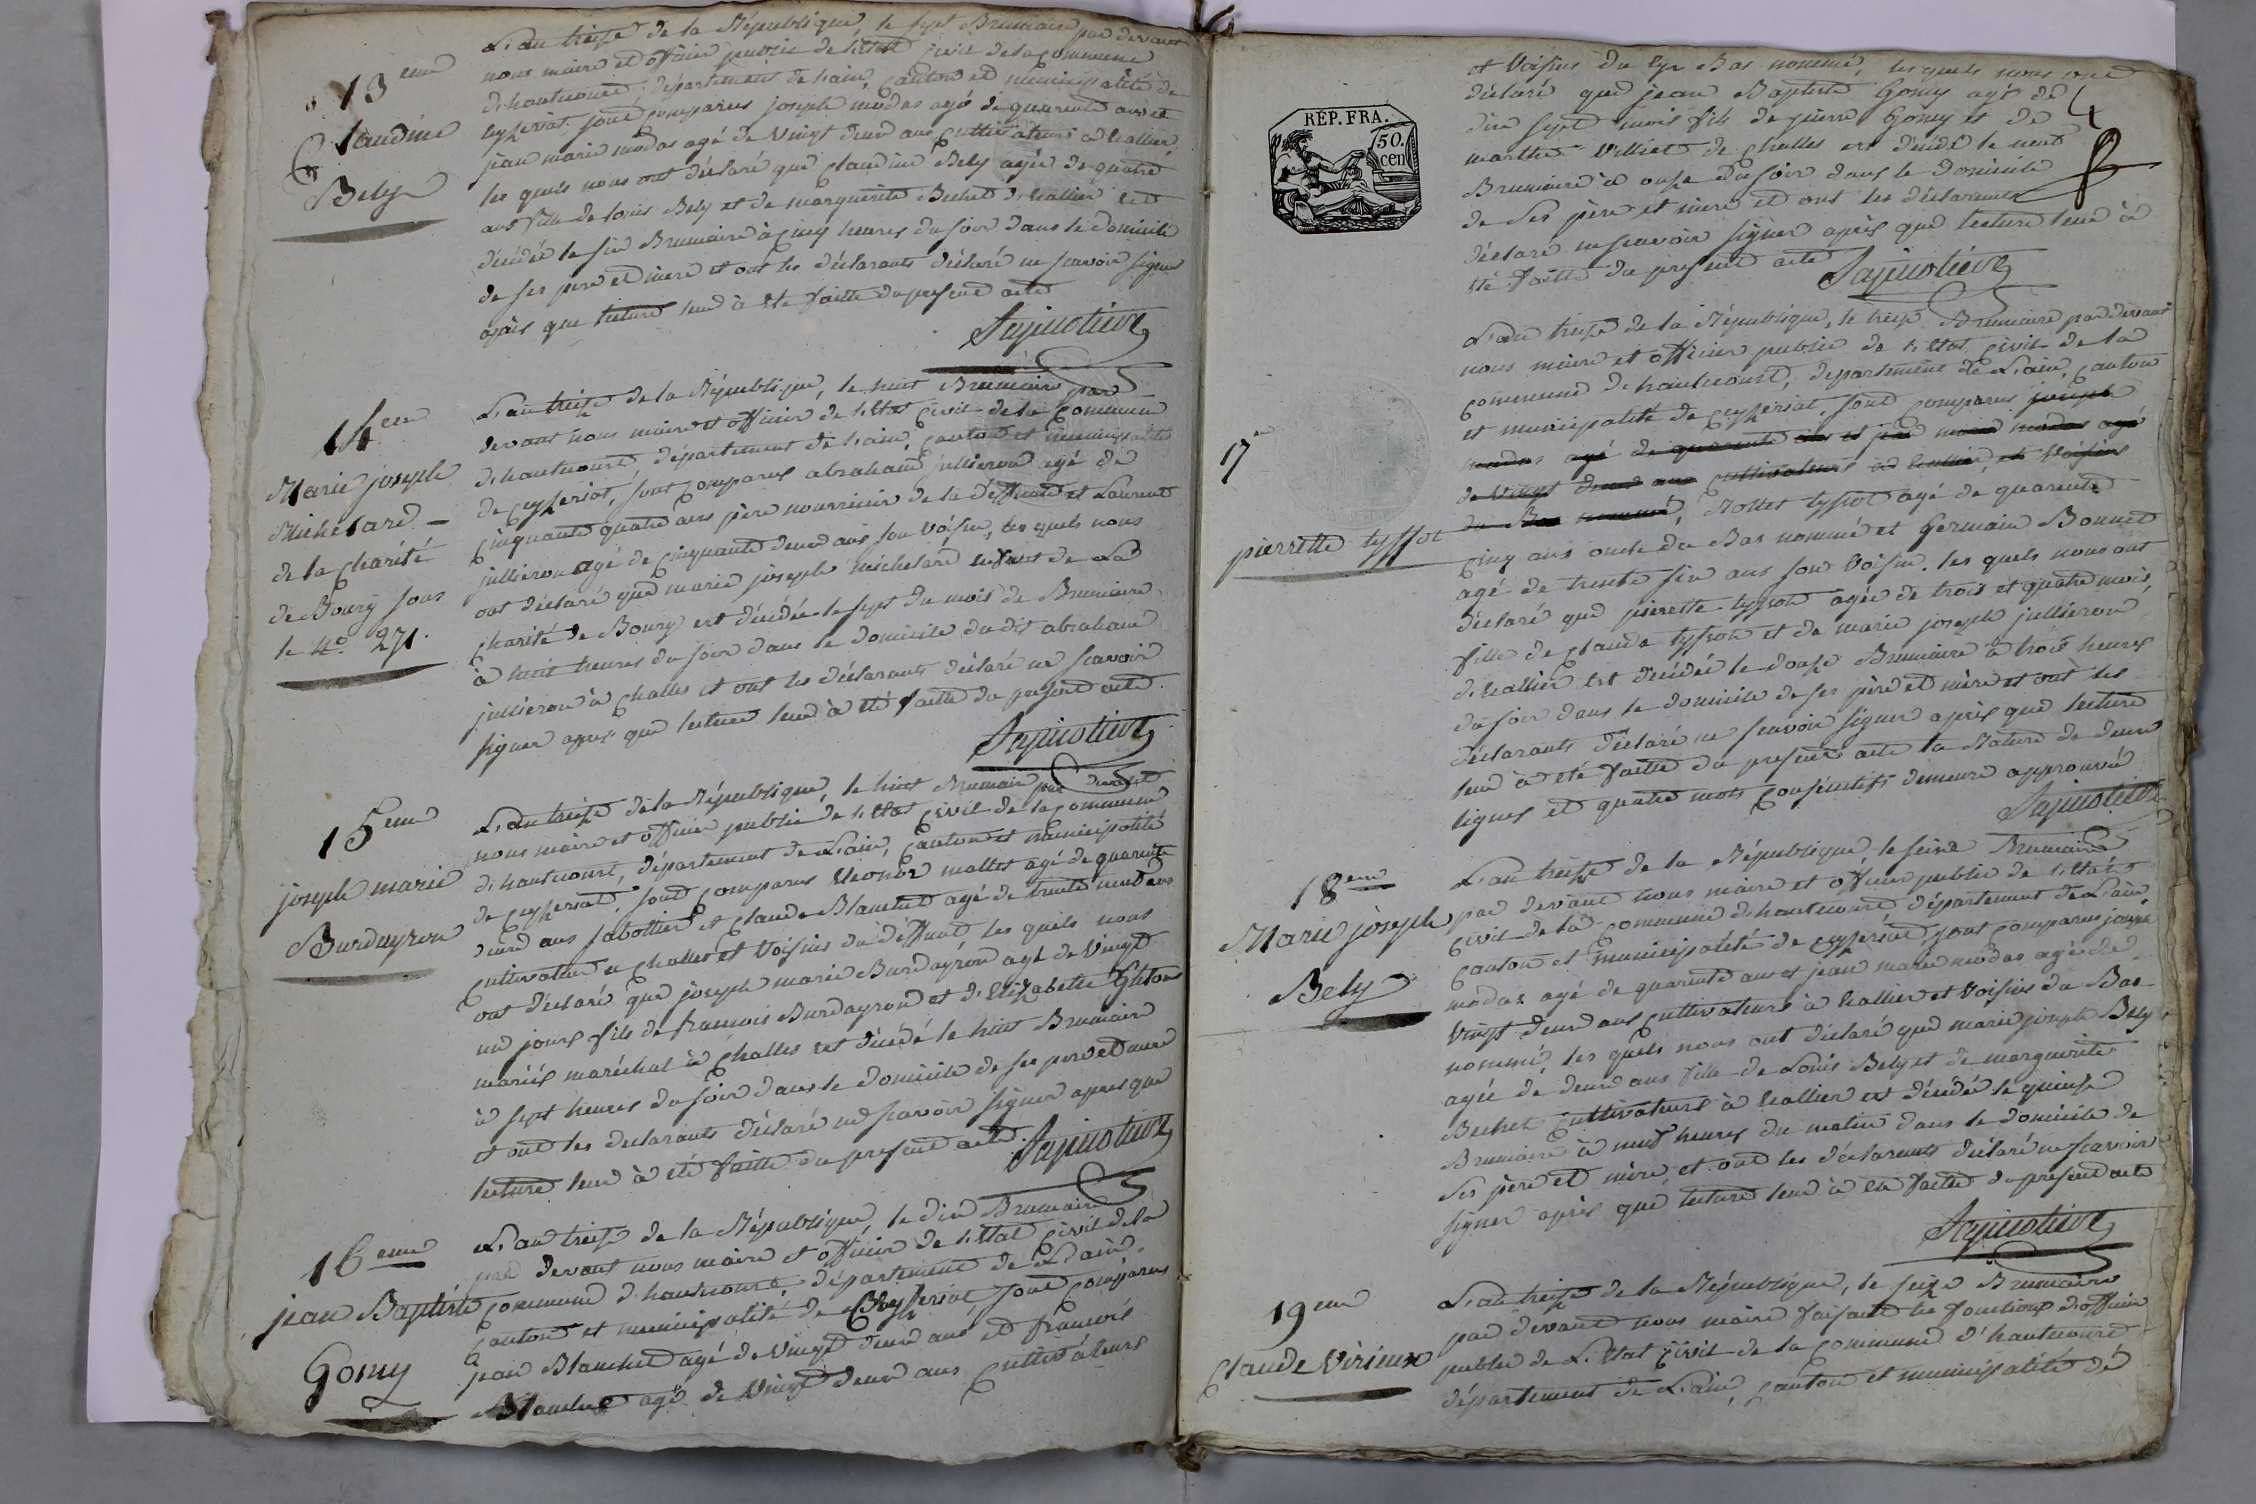 13eme
Claudine
Bely
L'an treize de la République, le sept Brumaire par devant
nous maire et officier public de l'Etat civil de la commune
d'hautecourt, département de L'ain, canton et municipalité de
ceyzeriat, sont comparus joseph modas agé de quarente ans et
jean marie modas agé de vingt deux ans cultivateurs à
les quels nous ont déclaré que Claudine Bely agée de quatre
ans fille de Louis Bely et de marguerite Bechet d' est
décédée le six Brumaire à cinq heures du soir dans le domicile
de ses pere et mere et ont les déclarants déclaré ne scavoir signer
après que lecture leur à été faitte du present acte
14eme
Marie joseph
Michelard
de la charité
de Bourg sous
le no. 271.
L'an treize de la République, le huit Brumaire par
devant nous maire et officier de l'Etat civil de la commune
d'hautecourt, département de l'ain, canton et municipalité
de ceyzeriat, sont comparus abraham jullieron agé de
cinquante quatre ans père nourricier de la deffunte et Laurent
jullieron agé de cinquante deux ans son voisin, les quels nous
ont déclaré que marie joseph michelard enfant de La
charité de Bourg est décédée le sept du mois de Brumaire
à huit heures du soir dans le domicile du dit abraham
jullieron à challes et ont les déclarants déclaré ne scavoir
signer après que lecture leur à été faitte du present acte
15eme
joseph marie
Burdeyron
L'an treize de la République, le huit Brumaire par devant
nous maire et officier public de l'Etat civil de la commune
d'hautecourt, département de L'ain, canton et municipalité
de ceyzeriat, sont comparus Eleonor mollet agé de quarente
deux ans sabottier et Claude Blanchet agé de trente neuf ans
cultivateur à challes et voisins du deffunt les quels nous
ont déclaré que joseph marie Burdeyron agé de vingt
un jours fils de francois Burdeyron et d'Elizabette
mariés maréchal à challes est décédé le huit Brumaire
à sept heures du soir dans le domicile de ses pere et mere
et ont les declarants déclaré ne scavoir signer apres que
lecture leur à été faitte du present acte.
16eme
jean Baptiste
Gomy
L'an treize de la République, le dix Brumaire
par devant nous maire et officier de l'Etat civil de la
commune d'hautecourt, département de L'ain,
canton et municipalité de Ceyzeriat sont comparus
jean Blanchet agé de vingt deux ans et francois
Blanchet agé de vingt deux ans cultivateurs
REP. FRA.
50.
cen
4
et voisins du cy Bas nommé, les quels nous ont
déclaré que jean Baptiste Gomy agé de
dix sept mois fils de pierre Gomy et de
marthe Villiet de challes est décédé le neuf
Brumaire à onze du soir dans le domicile
de ses père et mere et ont les déclarants
déclaré ne scavoir signer après que lecture leur à
été faitte du present acte
17e
pierrette tyssot
L'an treize de la République, le treize Brumaire par devant
nous maire et officier public de l'Etat civil de la
commune d'hautecourt, département de L'ain, canton
et municipalité de ceyzeriat, sont comparus joseph
modas agé de quarente ans et jean marie modas agé
de vingt deux ans cultivateurs à et voisins
du Bas nommé, tyssot agé de quarente
cinq ans oncle du Bas nommé et Germain Bonnet
agé de trente six ans son voisin. les quels nous ont
déclaré que pierrette tyssot agée de trois et quatre mois
fille de Claude tyssot et de marie joseph jullieron
d' est décédée le douze Brumaire à trois heures
du soir dans le domicile de ses père et mère et ont les
déclarants déclaré ne scavoir signer après que lecture
leur à été faitte du present acte la Rature de deux
lignes et quatre mots consécutifs demeure approuvée
18eme
Marie joseph
Bely
L'an treize de la République, le seize Brumaire
par devant nous maire et officier public de l'Etat
civil de la commune d'hautecourt département de L'ain,
canton et municipalité de ceyzeriat, sont comparus joseph
modas agé de quarente ans et jean marie modas agé de
vingt deux ans cultivateurs à et voisins du Bas
nommé, les quels nous ont déclaré que marie joseph Bely
agée de deux ans fille de Louis Bely et de marguerite
Bechet cultivateurs à est décédée le quinze
Brumaire à neuf heures du matin dans le domicile de
ses père et mère, et ont les déclarants déclaré ne scavoir
signer après que lecture leur à été faitte du present acte
19eme
Claude Virieux
L'an treize de la République, le seize Brumaire
par devant nous maire faisant les fonctions d'officier
public de L'Etat civil de la commune d'hautecourt
département de L'ain, canton et municipalité de